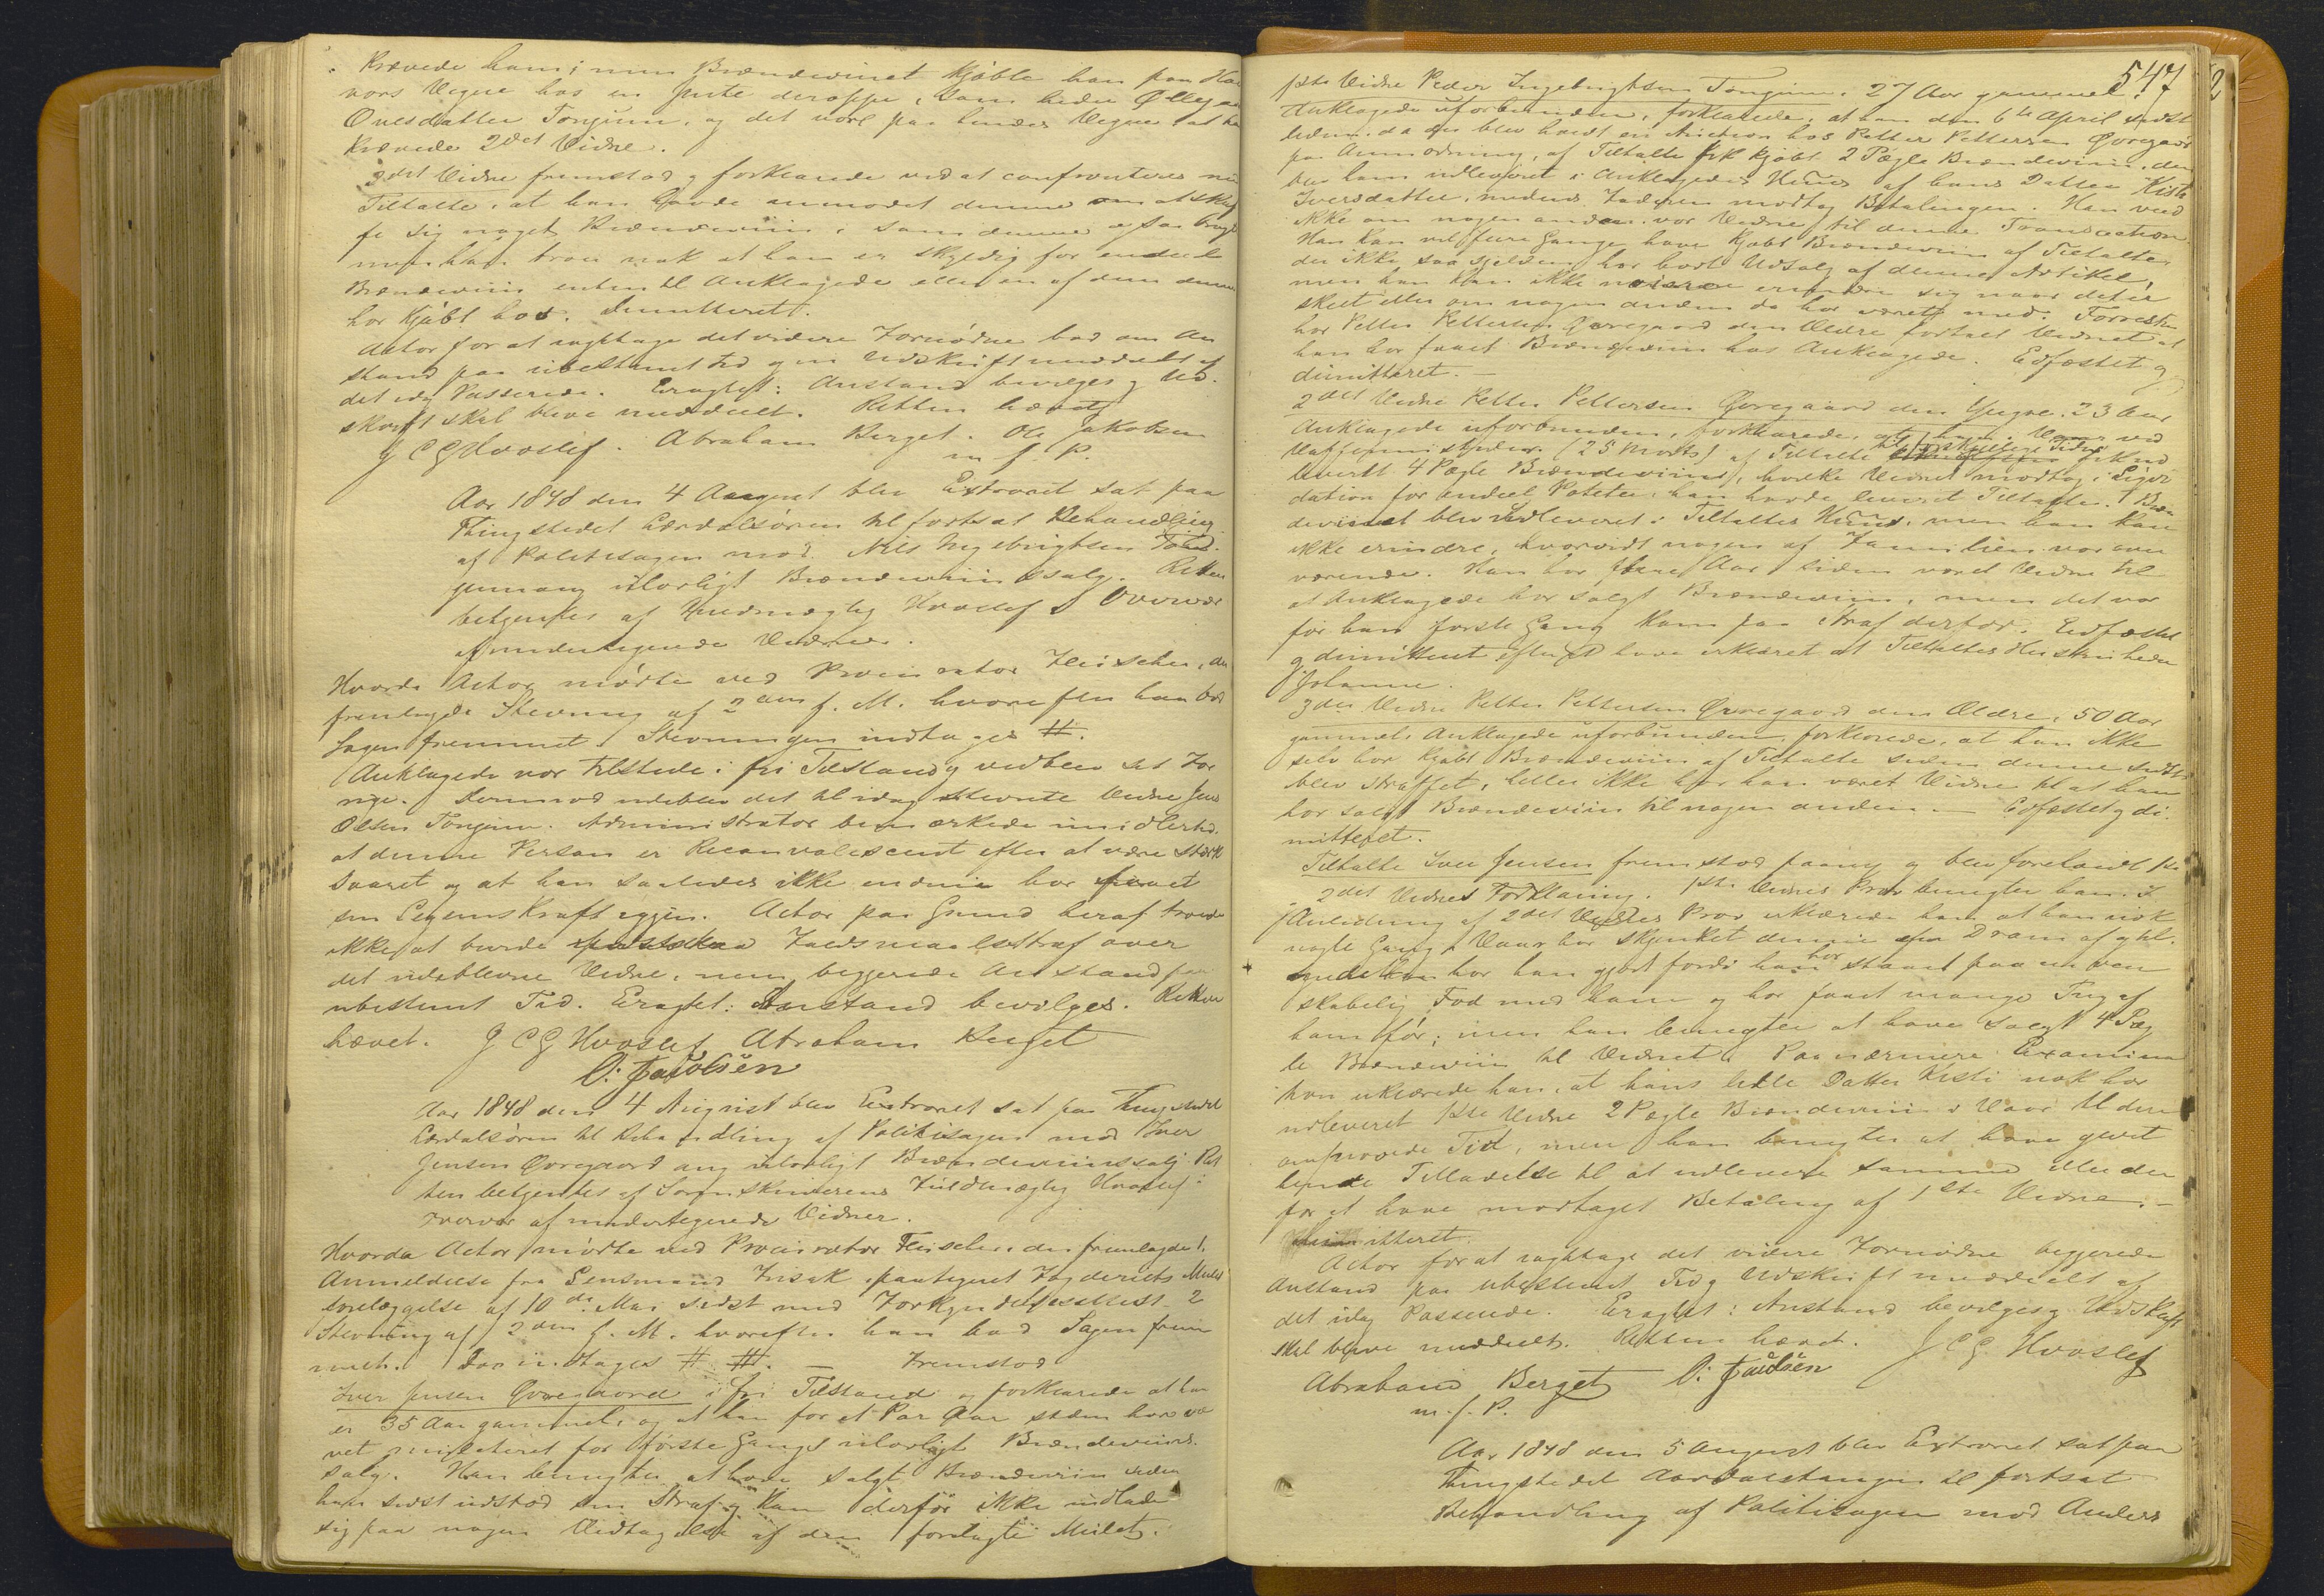 Krævede ham; men Brændeviinet kjøbte han paa Hal
vors Vegne hos en Jente deroppe, som heder Øllegaa
Ovesdatter Tønjum, og det var paa hendes Vegne at ha
krævede 2det Vidne.
2det Vidne fremstod og forklarede ved at confronteres m
Tiltalte, at han havde anmodet denne om at skaf
fe sig noget Brændeviin, som denne ogsaa
men han troer nok at han er skyldig for endeel
Brændeviin enten til Anklagede eller en af dem denne
har kjøbt hos. Dimitteret.
Actor for at iagttage det videre Fornødne bad om An
stand paa ubestemt Tid og en Udskrift meddeelt af
det idag Passerede. Eragtet: Anstand bevilges og Ud-
skrift skal blive meddeelt. Retten hævet
J C G Hvoslef. Abraham Berget. Ole Jakobsen
m. f. P.
Aar 1848 den 4 August blev Extraret sat paa
Thingstedet Lærdalsøren til fortsat Behandling
af Politisagen mod Nils Ingebrigtsen Tøn-
jum ang ulovligt Brændeviinssalg. Retten
betjentes af Fuldmægtig Hvoslef i Overvær
af undertegnede Vidner.
Hvorda Actor mødte ved Procurator Fleischer, der
fremlagde Stevning af 2den f. M. hvorefter han bad
Sagen fremmet. Stevningen indtages #.
Anklagede var tilstede i fri Tilstand og vedblev sit For
rige. Derimod udeblev det til idag stevnte Vidne Jens
Olsen Tønjum. Administrator bemærkede imidlertid
at denne Person er Reconvalescent efter at være stærkt
saaret og at han saaledes ikke endnu har faaet
sin Legemskraft igjen. Actor paa Grund heraf troede
ikke at burde paastaa Faldsmaalsstraf over
det udeblevne Vidne, men begjerede Anstand paa
ubestemt Tid. Eragtet: Anstand bevilges. Retten
hævet. J C G Hvoslef Abraham Berget
O: Jacobsen
Aar 1848 den 4 August blev Extraret sat paa Thingstedet
Lærdalsøren til Behandling af Politisagen mod Iver
Jensen Øvregaard ang ulovligt Brændeviinssalg. Ret
ten betjentes af Sorenskriverens Fuldmægtig Hvoslef i
Overvær af undertegnede Vidner.
Hvorda Actor mødte ved Procurator Fleischer, der fremlagde 1.
Anmeldelse fra Lensmand Husak paategnet Fogderiets Mulct
forelæggelse af 10de Mai sidst med Forkyndelsesattest. 2
Stevning af 2den f. M. hvorefter han bad Sagen frem
met. Der indtages # #. — Fremstod
Iver Jensen Øvregaard i fri Tilstand og forklarede at han
er 35 Aar gammel, og at han for et Par Aar siden har væ
ret mulcteret for første Gangs ulovligt Brændeviins-
salg. Han benægter at have solgt Brændeviin siden
han sidst udstod sin Straf og kan derfor ikke indlade
sig paa nogen Vedtagelse af den forelagte Mulct.
547
1ste Vidne Peder Ingebrigtsen Tønjum, 27 Aar gammel,
Anklagede uforbunden, forklarede, at han den 6te April sidst
leden, da der blev holdt en Auction hos Petter Pettersen Øvregaard
paa Anmodning, af Tiltalte fik kjøbt 2 Pægle Brændeviin, der
blev ham udleveret i Anklagedes Huus af hans Datter Kisti
Iversdatter, medens Faderen modtog Betalingen. Han veed
ikke om nogen anden var Vidne til denne Transaction.
Han kan vel flere Gange have kjøbt Brændeviin af Tiltalte
der ikke saa sjelden har havt Udsalg af denne Artikel,
men han kan ikke nøiere erindre sig naar det er
skeet eller om nogen anden da har været med. Forresten
har Petter Pettersen Øvregaard den Ældre fortalt Vidnet at
han har faaet Brændeviin hos Anklagede. Edfæstet og
dimitteret.—
2det Vidne Petter Pettersen Øvregaard den Yngre, 23 Aar
Anklagede uforbunden, forklarede, at han i Vaar ved
(25 Marts) af Tiltalte til forskjellige Tider fik ud
leveret 4 Pægle Brændeviin, hvilke Vidnet modtog i Liqvi
dation for endeel Poteter, han havde leveret Tiltalte. Bræn
deviinet blev udleveret i Tiltaltes Huus, men han kan
ikke erindre, hvorvidt nogen af Familien var over
værende. Han har flere Aar siden været Vidne til
at Anklagede har solgt Brændeviin, men det var
før han første Gang kom paa Straf derfor. Edfæstet
og dimitteret efter at have erklæret at Tiltaltes Huustru heder
Johanne.
3die Vidne Petter Pettersen Øvregaard den Ældre, 50 Aar
gammel, Anklagede uforbunden, forklarede, at han ikke
selv har kjøbt Brændeviin af Tiltalte siden denne sidst
blev straffet, heller ikke har han været Vidne til at han
har solgt Brændeviin til nogen anden.— Edfæstet og di-
mitteret.
Tiltalte Iver Jensen fremstod paany og blev foreholdt 1ste
2det Vidnes Forklaring. 1ste Vidnes Prov benægter han. I
Anledning af 2det Vidnes Prov erklærede han at han nok
nogle Gange i Vaar har skjenket denne en Dram og
har han gjort fordi han har staaet paa en ven
skabelig Fod med ham og har faaet mange Ting af
ham før; men han benægter at have solgt 4 Pæg
le Brændeviin til Vidnet. Paa nærmere Examina
tion erklærede han, at hans lille Datter Kisti nok har
udleveret 1ste Vidne 2 Pægle Brændeviin i Vaar til den
omprovede Tid, men han benægter at have givet
hende Tilladelse til at udlevere samme eller der
for at have modtaget Betaling af 1ste Vidne.—
Dimitteret.
Actor for at iagttage det videre Fornødne begjerede
Anstand paa ubestemt Tid og Udskrift meddeelt af
det idag Passerede. Eragtet: Anstand bevilges og Udskrift
skal blive meddeelt. Retten hævet. J C G Hvoslef
Abraham Berget O: Jacobsen
m. f. P.
Aar 1848 den 5 August blev Extraret sat paa
Thingstedet Aardalstangen til fortsat
Behandling af Politisagen mod Anders